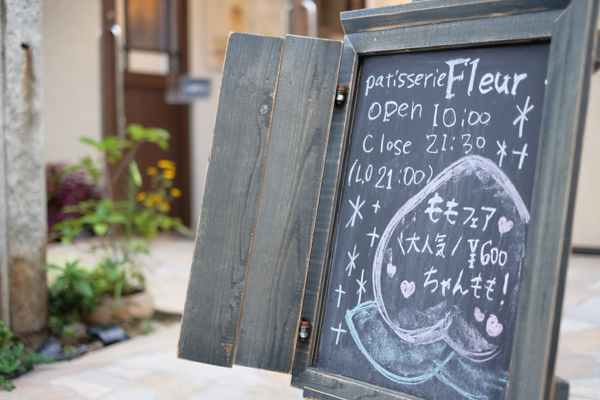 patisserie Fleur
open 10:00
close 21:30
(L.O 21:00)
ももフェア
\大人気/ ¥600
ちゃんもも!